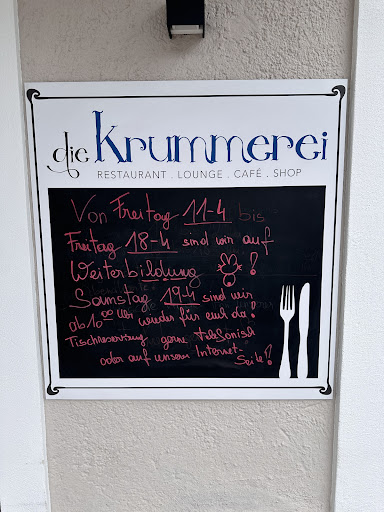 die Krummerei
RESTAURANT . LOUNGE . CAFÉ . SHOP
Von Freitag 11-4 bis
Freitag 18-4 sind wir auf
Weiterbildung !
Samstag 19-4 sind wir
ab 10°° Uhr wieder für euch da!
Tischreservierung gerne telefonisch
oder auf unserer Internet-
Seite!